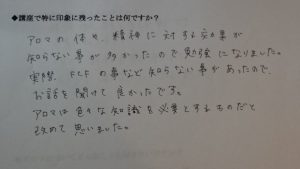 ◆講座で特に印象に残ったことは何ですか?
アロマの体や、精神に対する効果が
知らない事が多かったので勉強になりました。
実際、FCFの事など知らない事があったので、
お話を聞けて良かったです。
アロマは色々な知識を必要とするものだと
改めて思いました。